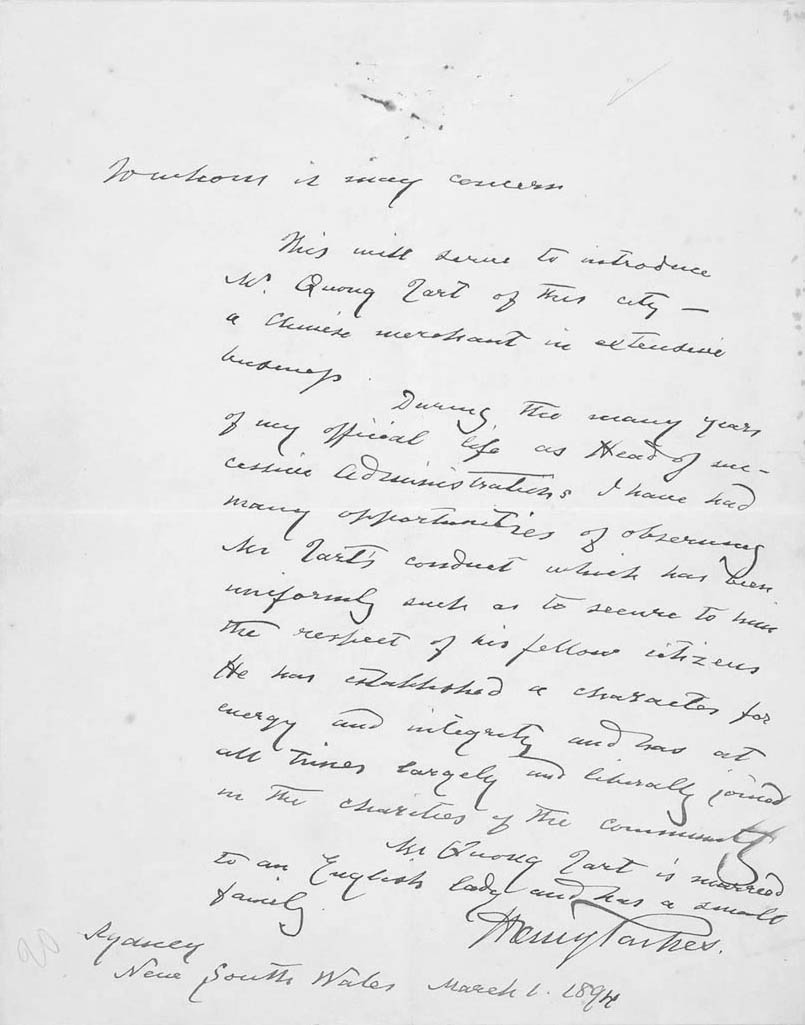 To whom it may concern
This will serve to introduce
Mr. Quong Tart of this city —
a Chinese merchant in extensive
business.
During the many years
of my official life as Head of suc-
cessive Administrations I have had
many opportunities of observing
Mr Tart's conduct which has been
uniformly such as to secure to him
the respect of his fellow citizens
He has established a character for
energy and integrity and has at
all times largely and liberally joined
in the charities of the community
Mr Quong Tart is married
to an English lady and has a small
family.
Henry Parkes.
Sydney
New South Wales March 1. 1894
20